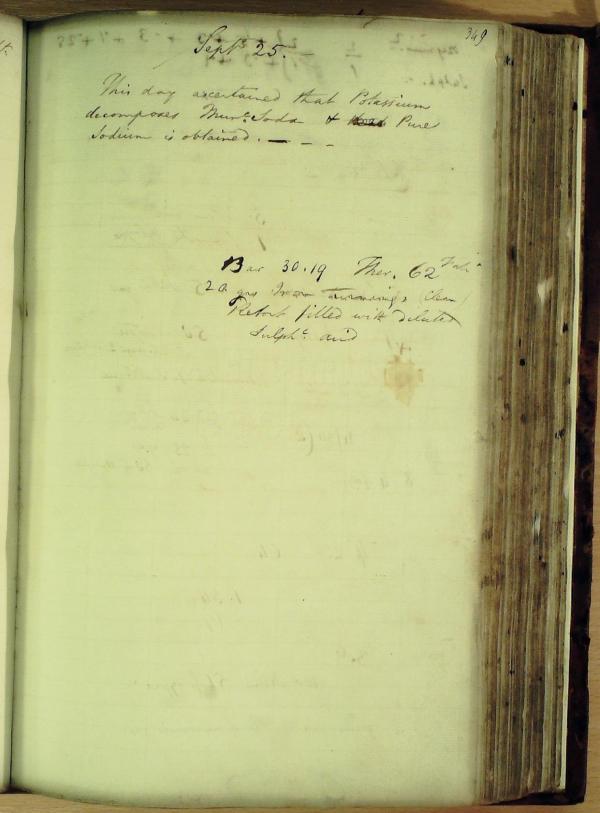 349
Septr 25.
This day ascertained that Potassium
decomposes Murc. Soda & Pure
Sodium is obtained. — - -
Bar 30.19 Ther. 62
20 grs Iron turnings (Clean)
Retort filled with diluted
Sulphc. acid